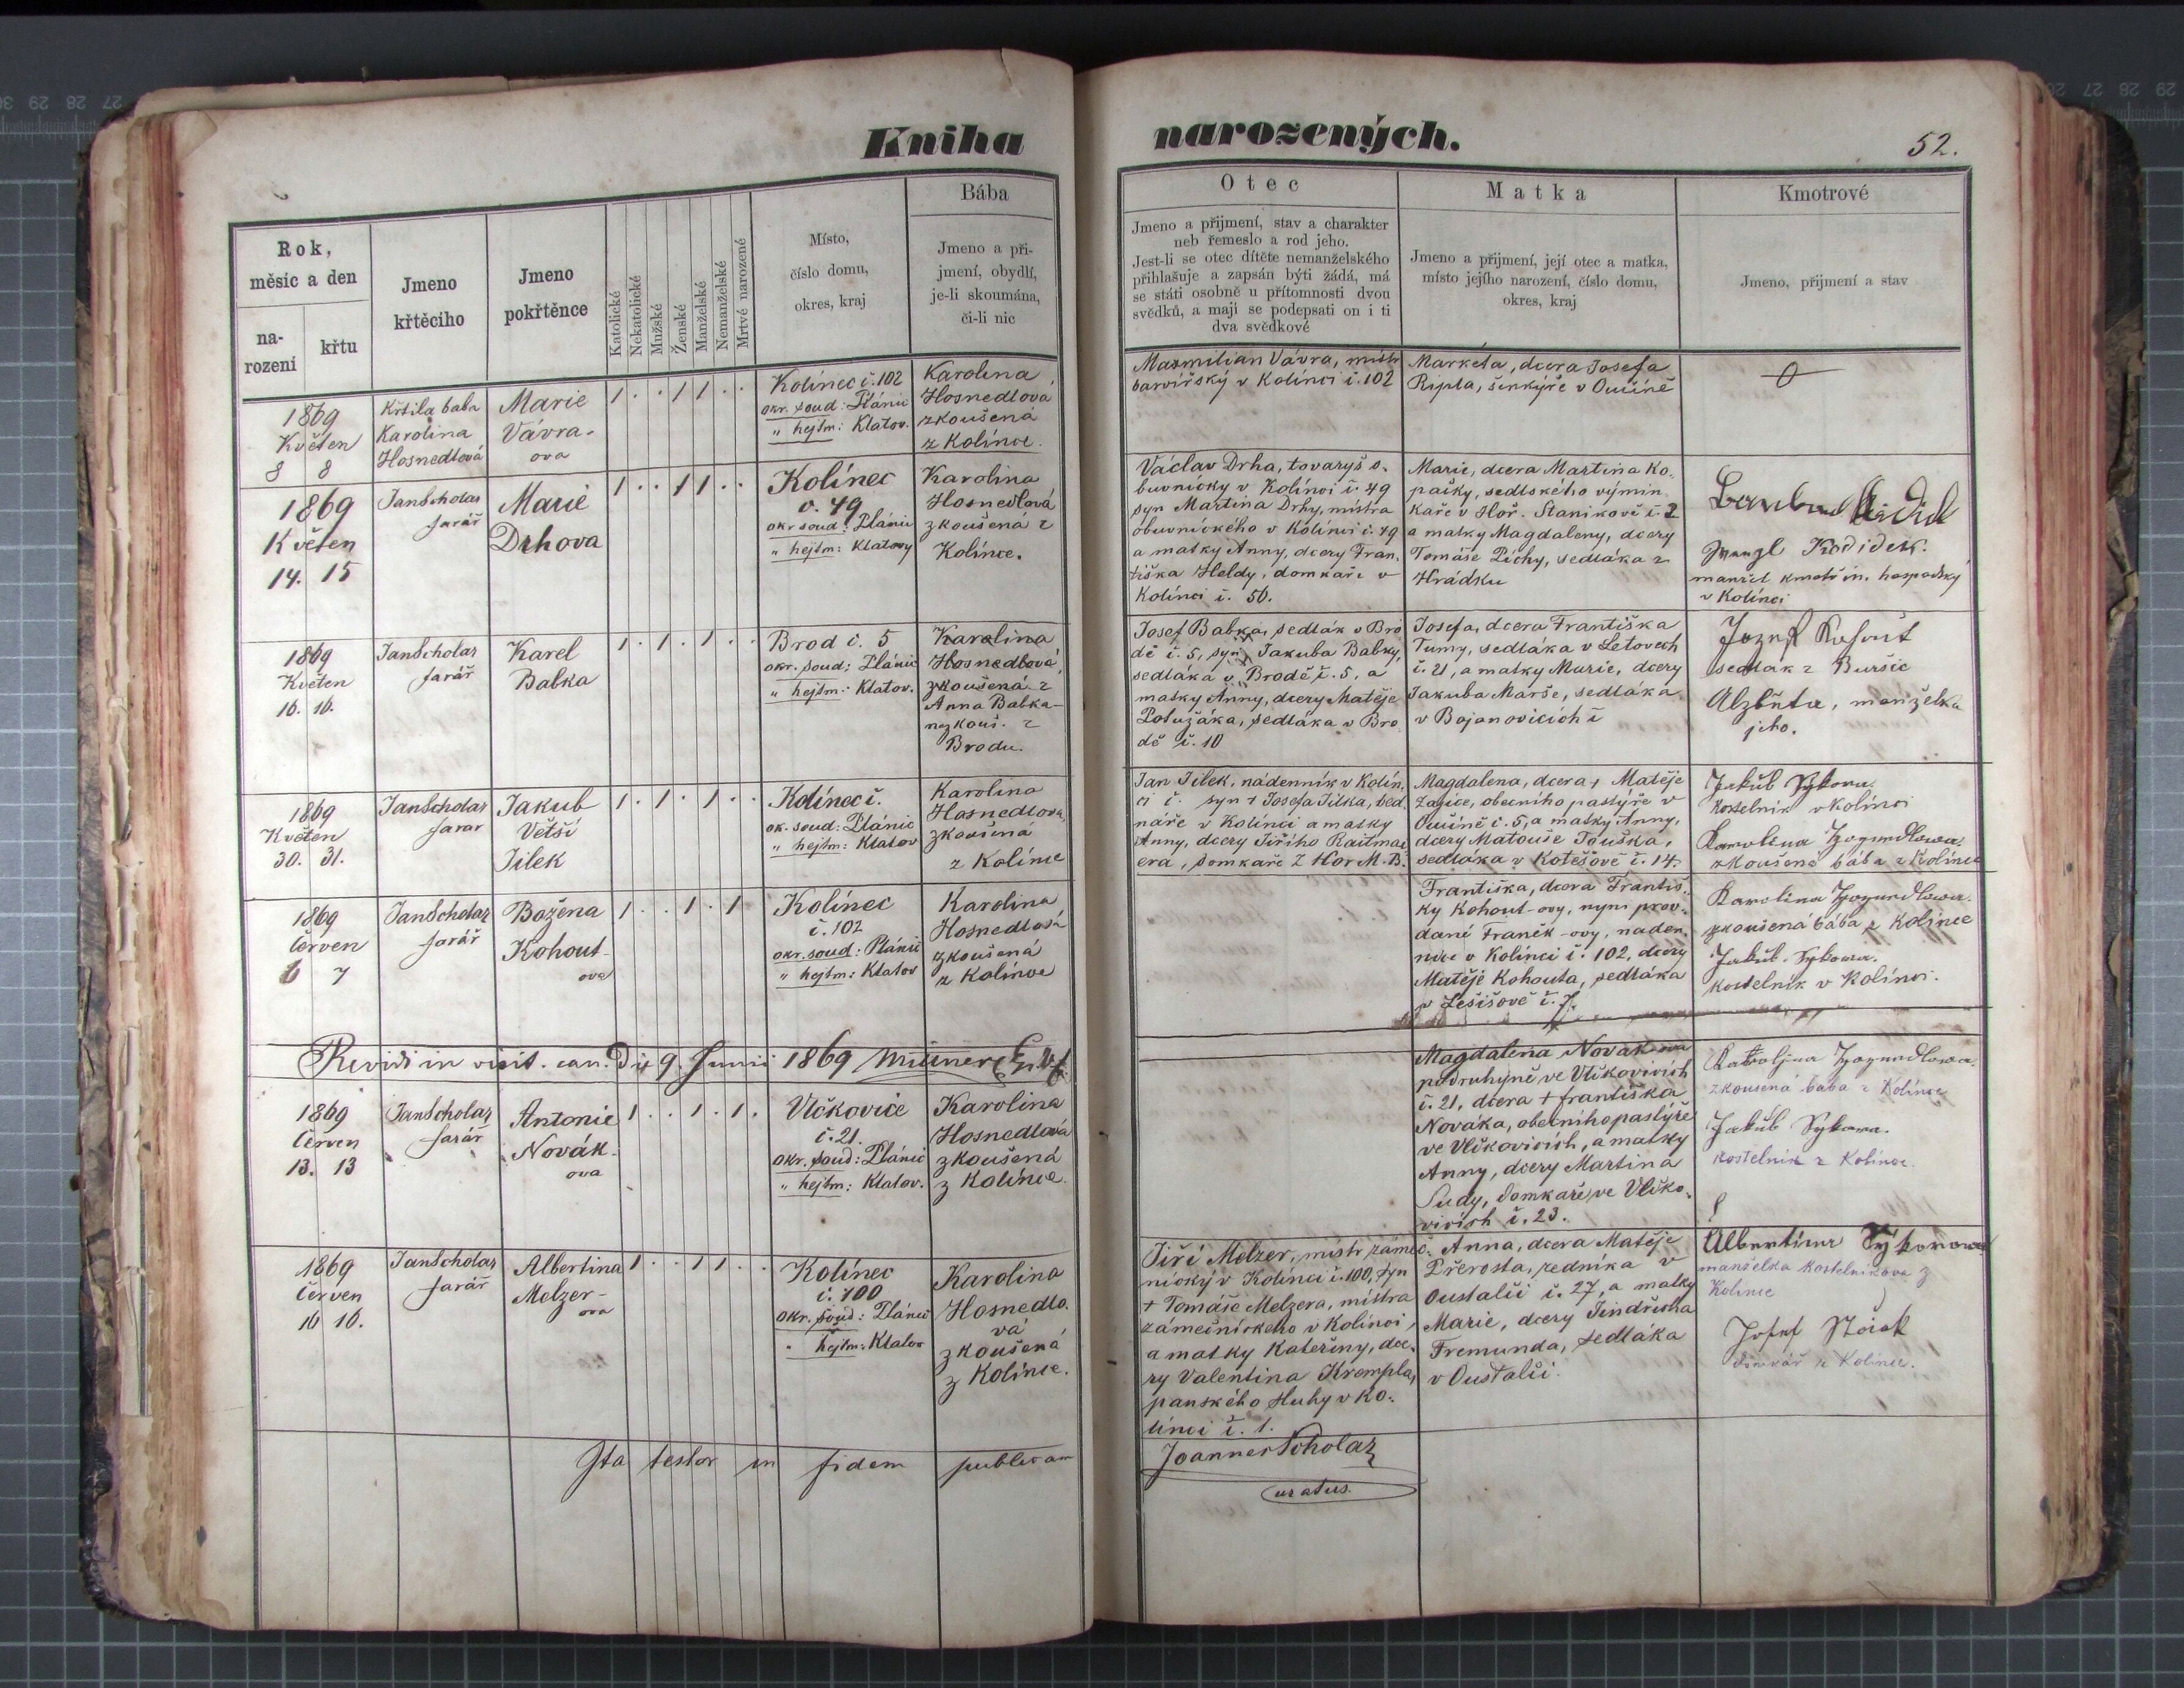 Kniha narozených.
52.
Rok,
měsíc a den
na-
rození
křtu
Jmeno
křtěcího
Jmeno
pokřtěnce
Katolické
Nekatolické
Mužské
Ženské
Manželské
Nemanželské
Mrtvé narozené
Místo,
číslo domu,
okres, kraj
Bába
Jmeno a při-
jmení, obydlí,
je-li skoumána,
či-li nic
Otec
Jmeno a přijmení, stav a charakter
neb řemeslo a rod jeho.
Jest-li se otec dítěte nemanželského
přihlašuje a zapsán býti žádá, má
se státi osobně u přítomnosti dvou
svědků, a mají se podepsati on i ti
dva svědkové
Matka
Jmeno a přijmení, její otec a matka,
místo jejího narození, číslo domu,
okres, kraj
Kmotrové
Jmeno, přijmení a stav
1869
Květen
8 8
Křtila baba
Karolina
Hosnedlová
Marie
Vávra-
ova
1 . . 1 1 . .
Kolínec č. 102
okr. soud: Plánic
" hejtm: Klatov.
Karolina
Hosnedlová
zkoušená
z Kolínce.
Maxmilian Vávra, mistr
barvířský v Kolínci č. 102
Marketa, dcera Josefa
Ripla, šenkýře v Oučíně
1869
Květen
14. 15
Jan Scholar
farář
Marie
Drhova
1 . . 1 1 . .
Kolínec
č. 49
okr soud: Plánic
" hejtm: Klatovy
Karolina
Hosnedlová
zkoušená z
Kolínce.
Václav Drha, tovaryš o-
buvnický v Kolínci č. 49
syn Martina Drhy, mistra
obuvnického v Kolínci č. 49
a matky Anny, dcery Fran-
tiška Heldy, domkaře v
Kolínci č. 50.
Marie, dcera Martina Ko-
pačky, sedlského výmin-
kaře v Hoř. Stanikově č. 2
a matky Magdaleny, dcery
Tomáše Píchy, sedláka z
Hrádku
Kodidek.
manžel kmotřin. hospodský
v Kolínci
1869
Květen
16. 16.
Jan Scholar
farář
Karel
Babka
1 . 1 . 1 . .
Brod č. 5
okr. soud: Plánic
" hejtm: Klatov.
Karolina
Hosnedlová
zkoušená z
Anna Babka-
nezkouš. z
Brodu.
Josef Babka, sedlák v Bro
dě č. 5, syn Jakuba Babky,
sedláka v Brodě č. 5, a
matky Anny, dcery Matěje
Potužáka, sedláka v Bro
dě č. 10
Josefa, dcera Františka
Tumy, sedláka v Letovech
č. 21, a matky Marie, dcery
Jakuba Marše, sedláka
v Bojanovicích č
Jozef Kohout
sedlák z Buršic
Alžběta, manželka
jeho.
1869
Květen
30. 31.
Jan Scholar
farar
Jakub
Větší
Jílek
1 . 1 . 1 . .
Kolínec č.
ok. soud: Plánic
" hejtm: Klatov
Karolina
Hosnedlova,
zkoušená
z Kolínce
Jan Jílek, nádenník v Kolín-
ci č. syn † Josefa Jílka, bed-
náře v Kolínci a matky
Anny, dcery Jiřího Raitmai-
era, domkaře z Hor M. B.
Magdalena, dcera † Matěje
Zajíce, obecního pastýře v
Oučíně č. 5, a matky Anny,
dcery Matouše Touška,
sedláka v Kotešově č. 14.
Jakub Sykora
kostelník v Kolínci
Karolina Hosnedlowa.
zkoušená bába z Kolínce
1869
Červen
6 7
Jan Scholar
farář
Božena
Kohout-
ova
1 . . 1 . 1
Kolínec
č. 102
okr. soud: Plánic
" hejtm: Klatov
Karolina
Hosnedlová
zkoušená
z Kolínce
Františka, dcera Františ-
ky Kohout-ovy, nyní prov-
dané Franěk-ovy, naden-
nice v Kolínci č. 102, dcery
Matěje Kohouta, sedláka
v Lešišově č. 7.
Karolina Hosnedlowa.
zkoušená bába z Kolínce
Jakub Sykora.
kostelník v Kolínci.
Revidi in visit. can. Die 9. Junii 1869
1869
Červen
13. 13
Jan Scholar
farář
Antonie
Novák-
ova
1 . . 1 . 1 .
Vlčkovice
č. 21.
okr. soud: Plánic
" hejtm: Klatov.
Karolina
Hosnedlová
zkoušená
z Kolínce.
Magdalena Novákova
podruhyně ve Vlčkovicích
č. 21, dcera † františka
Nováka, obecního pastýře
ve Vlčkovicích, a matky
Anny, dcery Martina
Sudy, domkaře ve Vlčko-
vicích č. 23.
Karolina Hosnedlowa
zkoušená bába z Kolínce
Jakub Sykora.
kostelník z Kolínce.
1869
Červen
16 16.
Jan Scholar
farář
Albertina
Melzer-
ova
1 . . 1 1 . .
Kolínec
č. 100
okr. soud: Plánic
" hejtm: Klatov
Karolina
Hosnedlo-
vá
zkoušená
z Kolínce.
Jiří Melzer, mistr zámeč-
nický v Kolínci č. 100, syn
† Tomáše Melzera, mistra
zámečnického v Kolínci,
a matky Kateřiny, dce-
ry Valentina Krempla,
panského sluhy v Ko-
línci č. 1.
Anna, dcera Matěje
Přerosta, zedníka v
Oustalči č. 27, a matky
Marie, dcery Jindřicha
Fremunda, sedláka
v Oustalči.
Albertina Sykorowa
manželka kostelníkova z
Kolínce
Josef
domkář z Kolínce.
Ita testor in fidem publicam
Joannes Scholar
curatus.